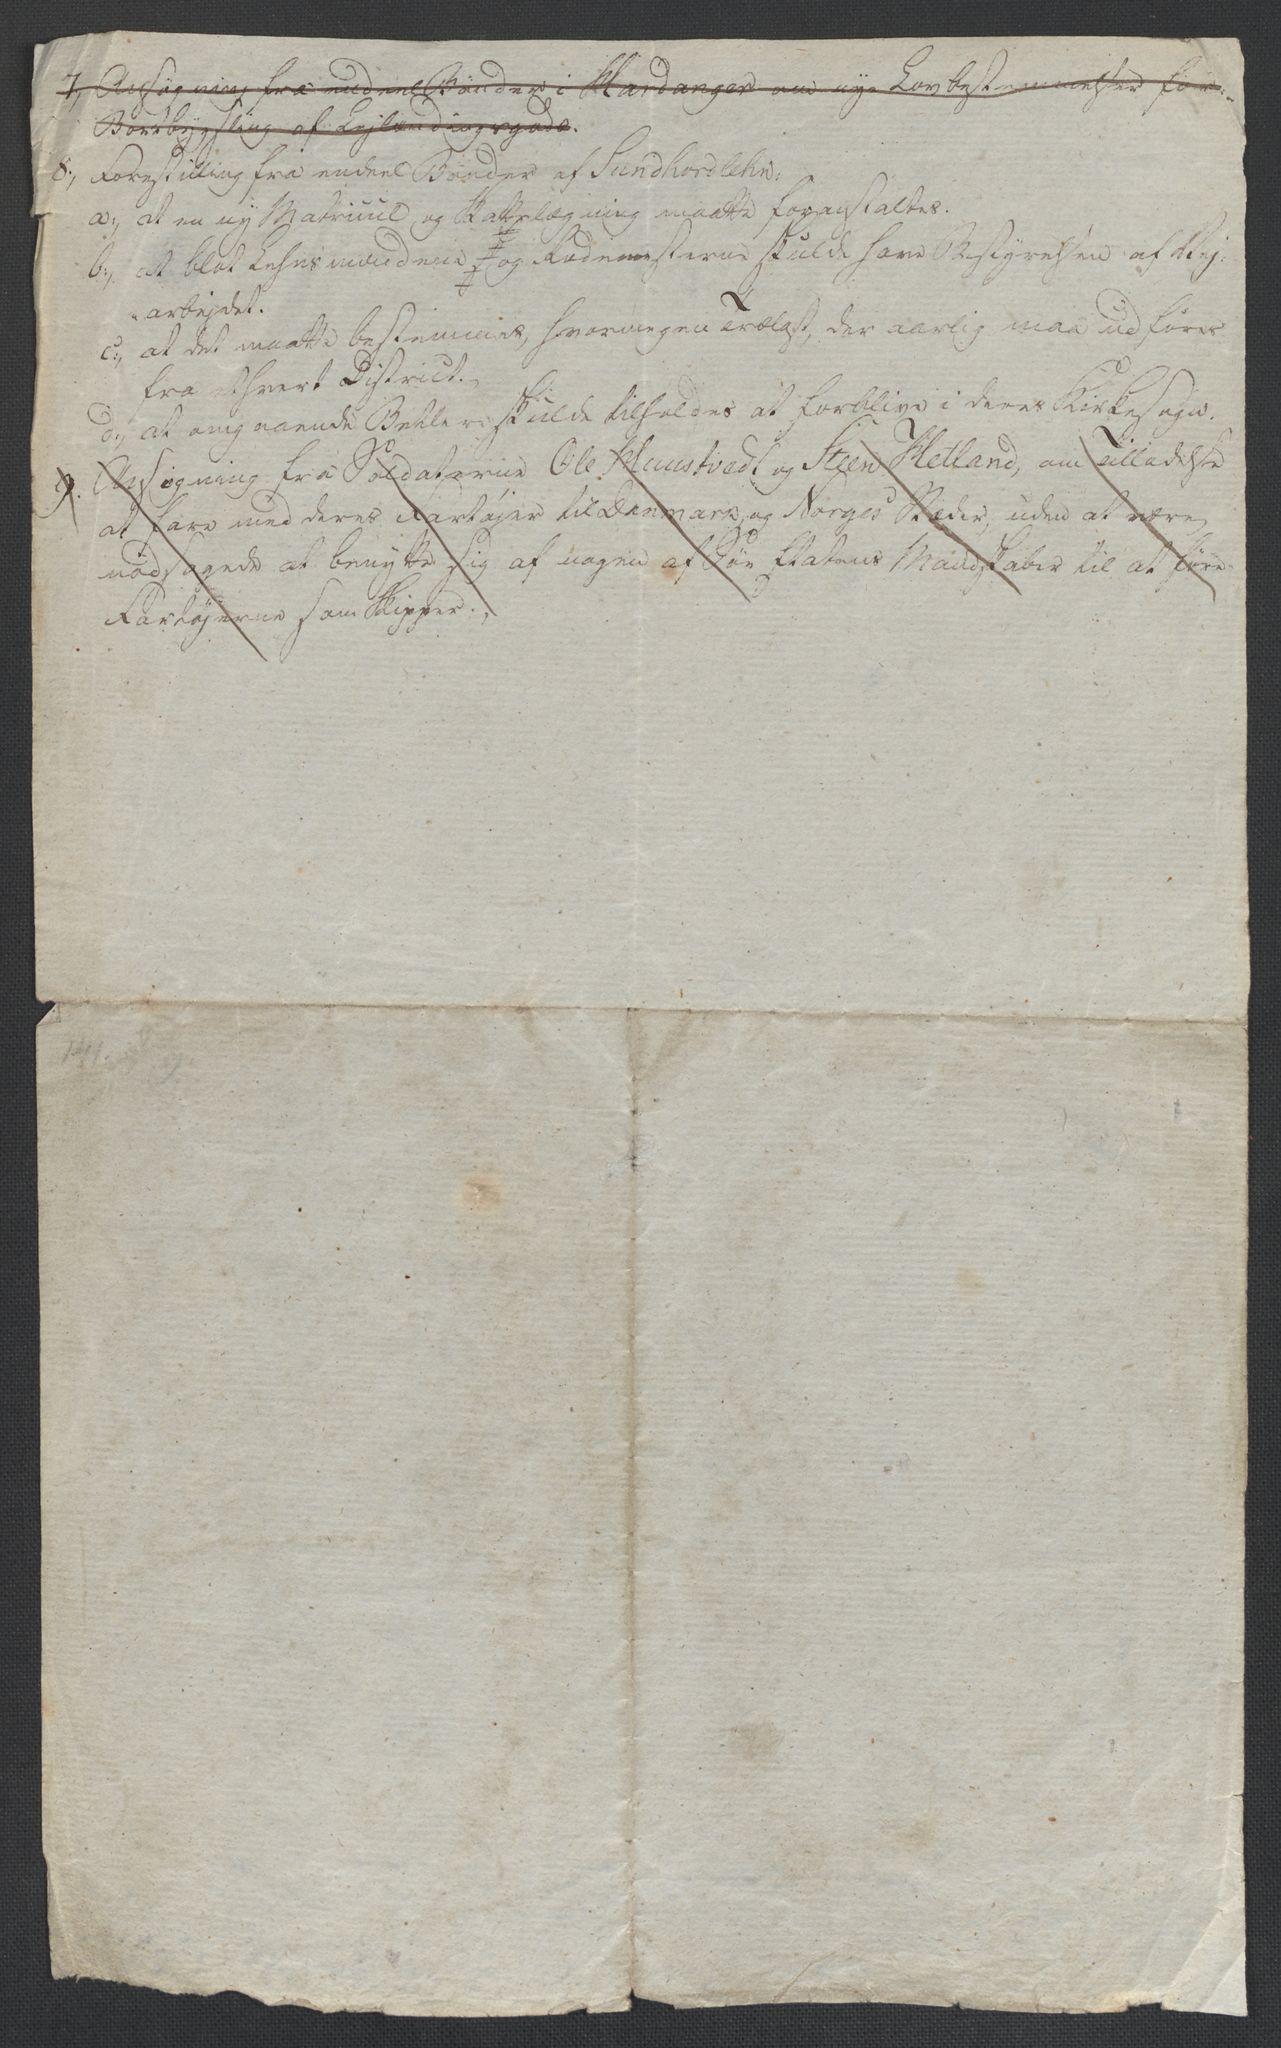 7, Ansøgning fra endeel Bønder i Hardanger om nye Lovbestemmelser for
Bortbygsling af Lejlændingsgods.
8., Forestilling fra endeel Bønder af Sundhordlehn:
a., at en ny Matricul og Skattelægning maatte foranstaltes.
b., at blot Lehnsmændene og Rodemesterne skulde have Bestyrelsen af Vej-
arbejdet.
c., at det maatte bestemmes, hvormegen Trælast, der aarlig maa udføres
fra ethvert District.
d., at omgaaende Betlere skulde tilholdes at forblive i deres Kirkesogn.
9. Ansøgning fra Soldaterne Ole Huustvedt og Steen Hetland, om Tilladelse
at fare med deres Fartøjer til Danmark og Norges Stæder, uden at være
nødsagede at benytte sig af nogen af Søe Etatens Mandskaber til at føre
Fartøjerne som Skipper.